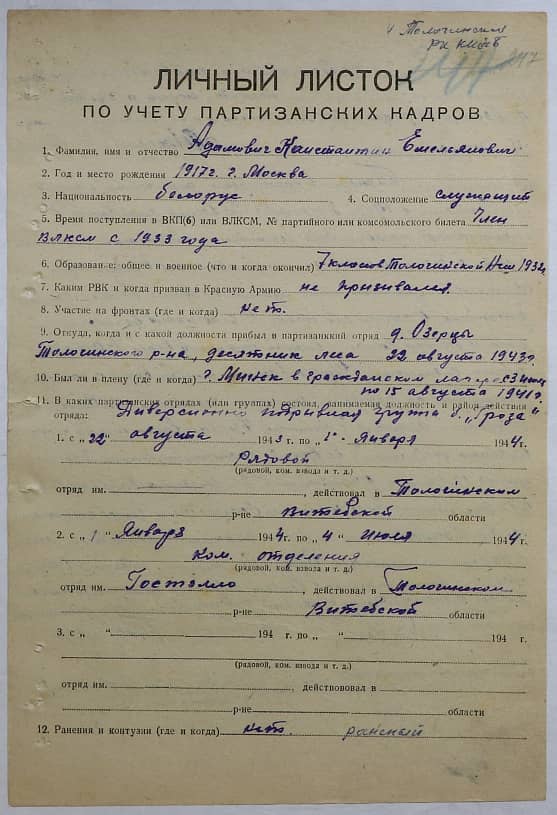 Толочинский
РК КП(б)Б
ЛИЧНЫЙ ЛИСТОК
ПО УЧЕТУ ПАРТИЗАНСКИХ КАДРОВ
1. Фамилия, имя и отчество Адамович Константин Емельянович
2. Год и место рождения 1917 г. г. Москва
3. Национальность белорус 4. Соцположение служащий
5. Время поступления в ВКП(б) или ВЛКСМ, № партийного или комсомольского билета Член
ВЛКСМ с 1933 года
6. Образование; общее и военное (что и когда окончил) 7 классов Толочинской 1932
7. Каким РВК и когда призван в Красную Армию не призывался
8. Участие на фронтах (где и когда) нет.
9. Откуда, когда и с какой должности прибыл в партизанский отряд д. Озерцы
Толочинского р-на, десятник леса 22 августа 1943 г.
10. Был ли в плену (где и когда) г. Минск в гражданском лагере с 3 июля
по 15 августа 1941 г.
11. В каких партизанских отрядах (или группах) состоял, занимаемая должность и район действия
отряда: Диверсионно подрывная группа "гроза"
1. с „22" августа 1943 г. по „1" Января 1944 г.
Рядовой
(рядовой, ком. взвода и т. д.)
отряд им. , действовал в Толочинском
р-не Витебской области
2. с „1" Января 1944 г. по „4" Июля 1944 г.
Ком. отделения
(рядовой, ком. взвода и т. д.)
отряд им. Гостэлло , действовал в Толочинском
р-не Витебской области
3. с „ " 194 г. по „ " 194 г.
(рядовой, ком. взвода и т. д.)
отряд им. , действововал в
р-не области
12. Ранения и контузии (где и когда) нет.